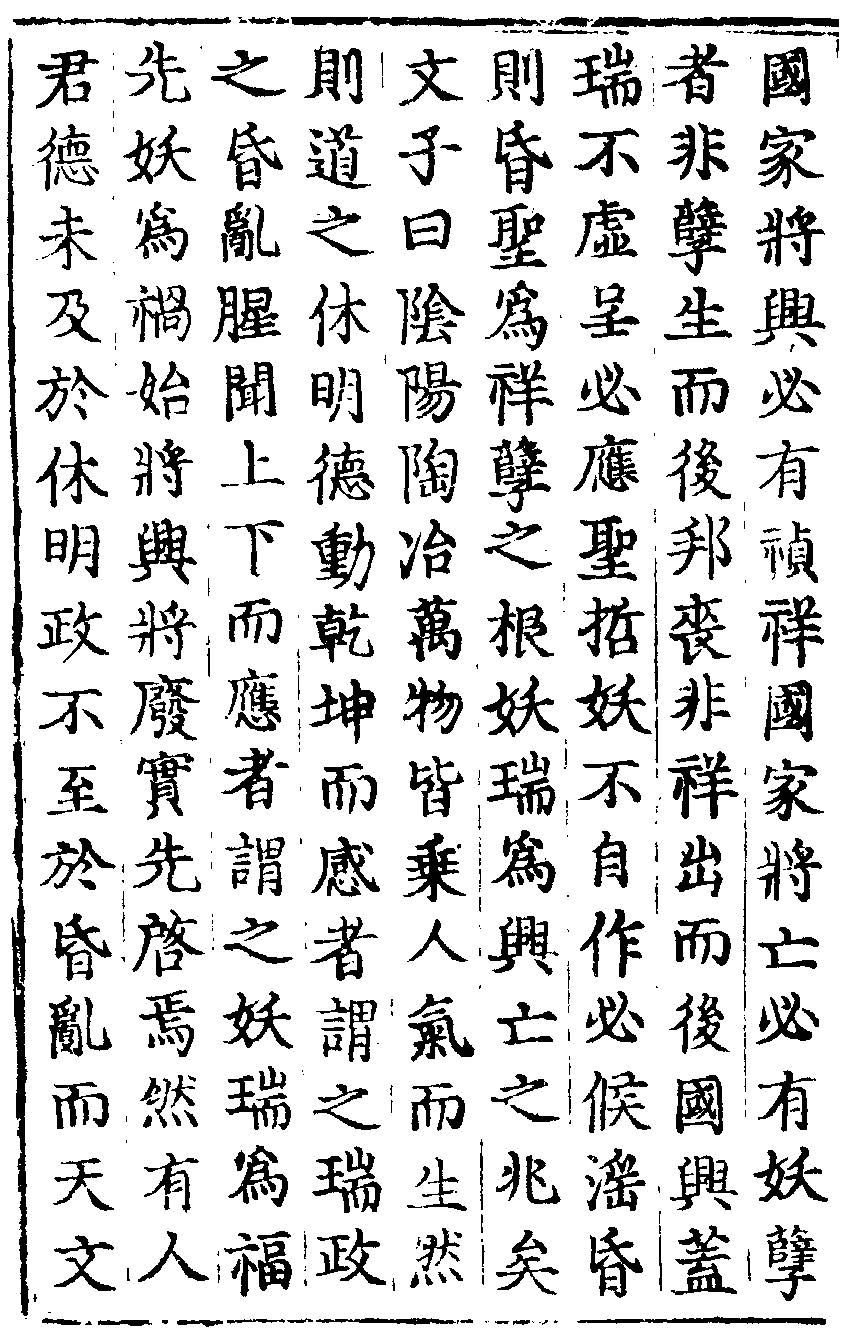 國家將興必有禎祥國家將亡必有妖孽
者非孽生而後邦喪非祥出而後國興蓋
瑞不虛呈必應聖哲妖不自作必候滛昏
則昏聖爲祥孽之根妖瑞爲興亡之兆矣
文子曰陰陽陶冶萬物皆乗人氣而生然
則道之休明德動乾坤而感者謂之瑞政
之昏亂腥聞上下而應者謂之妖瑞爲福
先妖爲禍始將興將廢實先啓焉然有人
君德未及於休明政不至於昏亂而天文